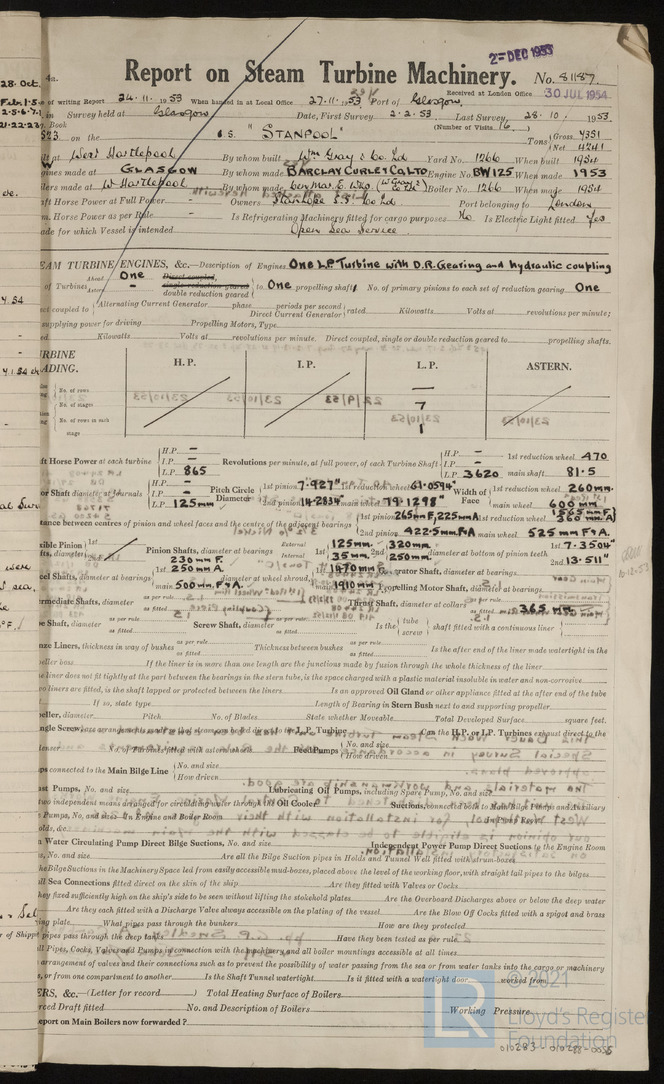 2- DEC 1953
Report on Steam Turbine Machinery. No. 81187.
Received at London Office 30 JUL 1954
of writing Report 24.11.1953 When handed in at Local Office 27.11.1953 Port of Glasgow.
in Survey held at Glasgow Date, First Survey 2.2.53 Last Survey 28.10.1953.
(Number of Visits 16)
on the S.S. "STANPOOL" Tons Gross 4351
Net 4241
at West Hartlepool By whom built Wm Gray & Co. Ltd Yard No. 1266 When built 1954
gines made at GLASGOW By whom made BARCLAY CURLE & CO LTD Engine No. BW125 when made 1953
lers made at W. Hartlepool By whom made Boiler No. 1266 When made 1954
ft Horse Power at Full Power - Owners Stanhope S.S. Co Ltd Port belonging to London
m. Horse Power as per Rule - Is Refrigerating Machinery fitted for cargo purposes No Is Electric Light fitted Yes
ade for which Vessel is intended Open Sea Service.
EAM TURBINE ENGINES, &c.—Description of Engines One L.P. Turbine with D.R. Gearing and hydraulic coupling
of Turbines Ahead One Astern - Direct coupled, single reduction geared double reduction geared to One propelling shafts. No. of primary pinions to each set of reduction gearing One
ct coupled to Alternating Current Generator phase periods per second
Direct Current Generator rated Kilowatts Volts at revolutions per minute;
supplying power for driving Propelling Motors, Type
ed Kilowatts Volts at revolutions per minute. Direct coupled, single or double reduction geared to propelling shafts.
RBINE
ADING.
H.P. I.P. L.P. ASTERN.
No. of rows
No. of stages 7
No. of rows in each stage 1
ft Horse Power at each turbine H.P. - I.P. - L.P. 865 Revolutions per minute, at full power, of each Turbine Shaft H.P. - I.P. - L.P. 3620 1st reduction wheel 470
main shaft 81.5
or Shaft diameter at journals H.P. - I.P. - L.P. 125mm Pitch Circle Diameter 1st pinion 7.927" 1st reduction wheel 61.0594" Width of Face 1st reduction wheel 260mm
2nd pinion 14.2834" main wheel 79.1298" main wheel 600mm
tance between centres of pinion and wheel faces and the centre of the adjacent bearings 1st pinion 265mm F, 225mm A 1st reduction wheel 360mm A
2nd pinion 422.5mm F&A main wheel 525mm F&A
xible Pinion Pinion Shafts, diameter at bearings External 1st 125mm 2nd 320mm Internal 1st 35mm 2nd 250mm diameter at bottom of pinion teeth 1st 7.3504"
2nd 13.511"
eel Shafts, diameter at bearings 1st 230mm F. 250mm A. main 500mm F&A diameter at wheel shroud, 1st 1470mm main 1910mm Generator Shaft, diameter at bearings
Propelling Motor Shaft, diameter at bearings
rmediate Shafts, diameter as per rule as fitted Thrust Shaft, diameter at collars as per rule as fitted 365 mm
be Shaft, diameter as per rule as fitted Screw Shaft, diameter as per rule as fitted Is the tube screw shaft fitted with a continuous liner
nze Liners, thickness in way of bushes as per rule as fitted Thickness between bushes as per rule as fitted Is the after end of the liner made watertight in the
peller boss If the liner is in more than one length are the junctions made by fusion through the whole thickness of the liner
e liner does not fit tightly at the part between the bearings in the stern tube, is the space charged with a plastic material insoluble in water and non-corrosive
o liners are fitted, is the shaft lapped or protected between the liners Is an approved Oil Gland or other appliance fitted at the after end of the tube
If so, state type Length of Bearing in Stern Bush next to and supporting propeller
peller, diameter Pitch No. of Blades State whether Moveable Total Developed Surface square feet.
Can the H.P. or L.P. Turbines exhaust direct to the
Feed Pumps No. and size
How driven
ps connected to the Main Bilge Line No. and size
How driven
ast Pumps, No. and size Lubricating Oil Pumps, including Spare Pump, No. and size
two independent means arranged for circulating water through the Oil Cooler Suctions, connected both to Main Bilge Pumps and Auxiliary
Pumps, No. and size In Engine and Boiler Room
olds, &c.
n Water Circulating Pump Direct Bilge Suctions, No. and size Independent Power Pump Direct Suctions to the Engine Room
s, No. and size Are all the Bilge Suction pipes in Holds and Tunnel Well fitted with strum-boxes
he Bilge Suctions in the Machinery Space led from easily accessible mud-boxes, placed above the level of the working floor, with straight tail pipes to the bilges
ll Sea Connections fitted direct on the skin of the ship Are they fitted with Valves or Cocks
hey fixed sufficiently high on the ship's side to be seen without lifting the stokehold plates Are the Overboard Discharges above or below the deep water
Are they each fitted with a Discharge Valve always accessible on the plating of the vessel Are the Blow Off Cocks fitted with a spigot and brass
ing plate What pipes pass through the bunkers How are they protected
pipes pass through the deep tanks Have they been tested as per rule
ll Pipes, Cocks, Valves and Pumps in connection with the machinery and all boiler mountings accessible at all times
arrangement of valves and their connections such as to prevent the possibility of water passing from the sea or from water tanks into the cargo or machinery
s, or from one compartment to another Is the Shaft Tunnel watertight Is it fitted with a watertight door worked from
ERS, &c.—(Letter for record) Total Heating Surface of Boilers
rced Draft fitted No. and Description of Boilers Working Pressure
eport on Main Boilers now forwarded?
© 2021
Lloyd's Register
Foundation
010283-010288-0035